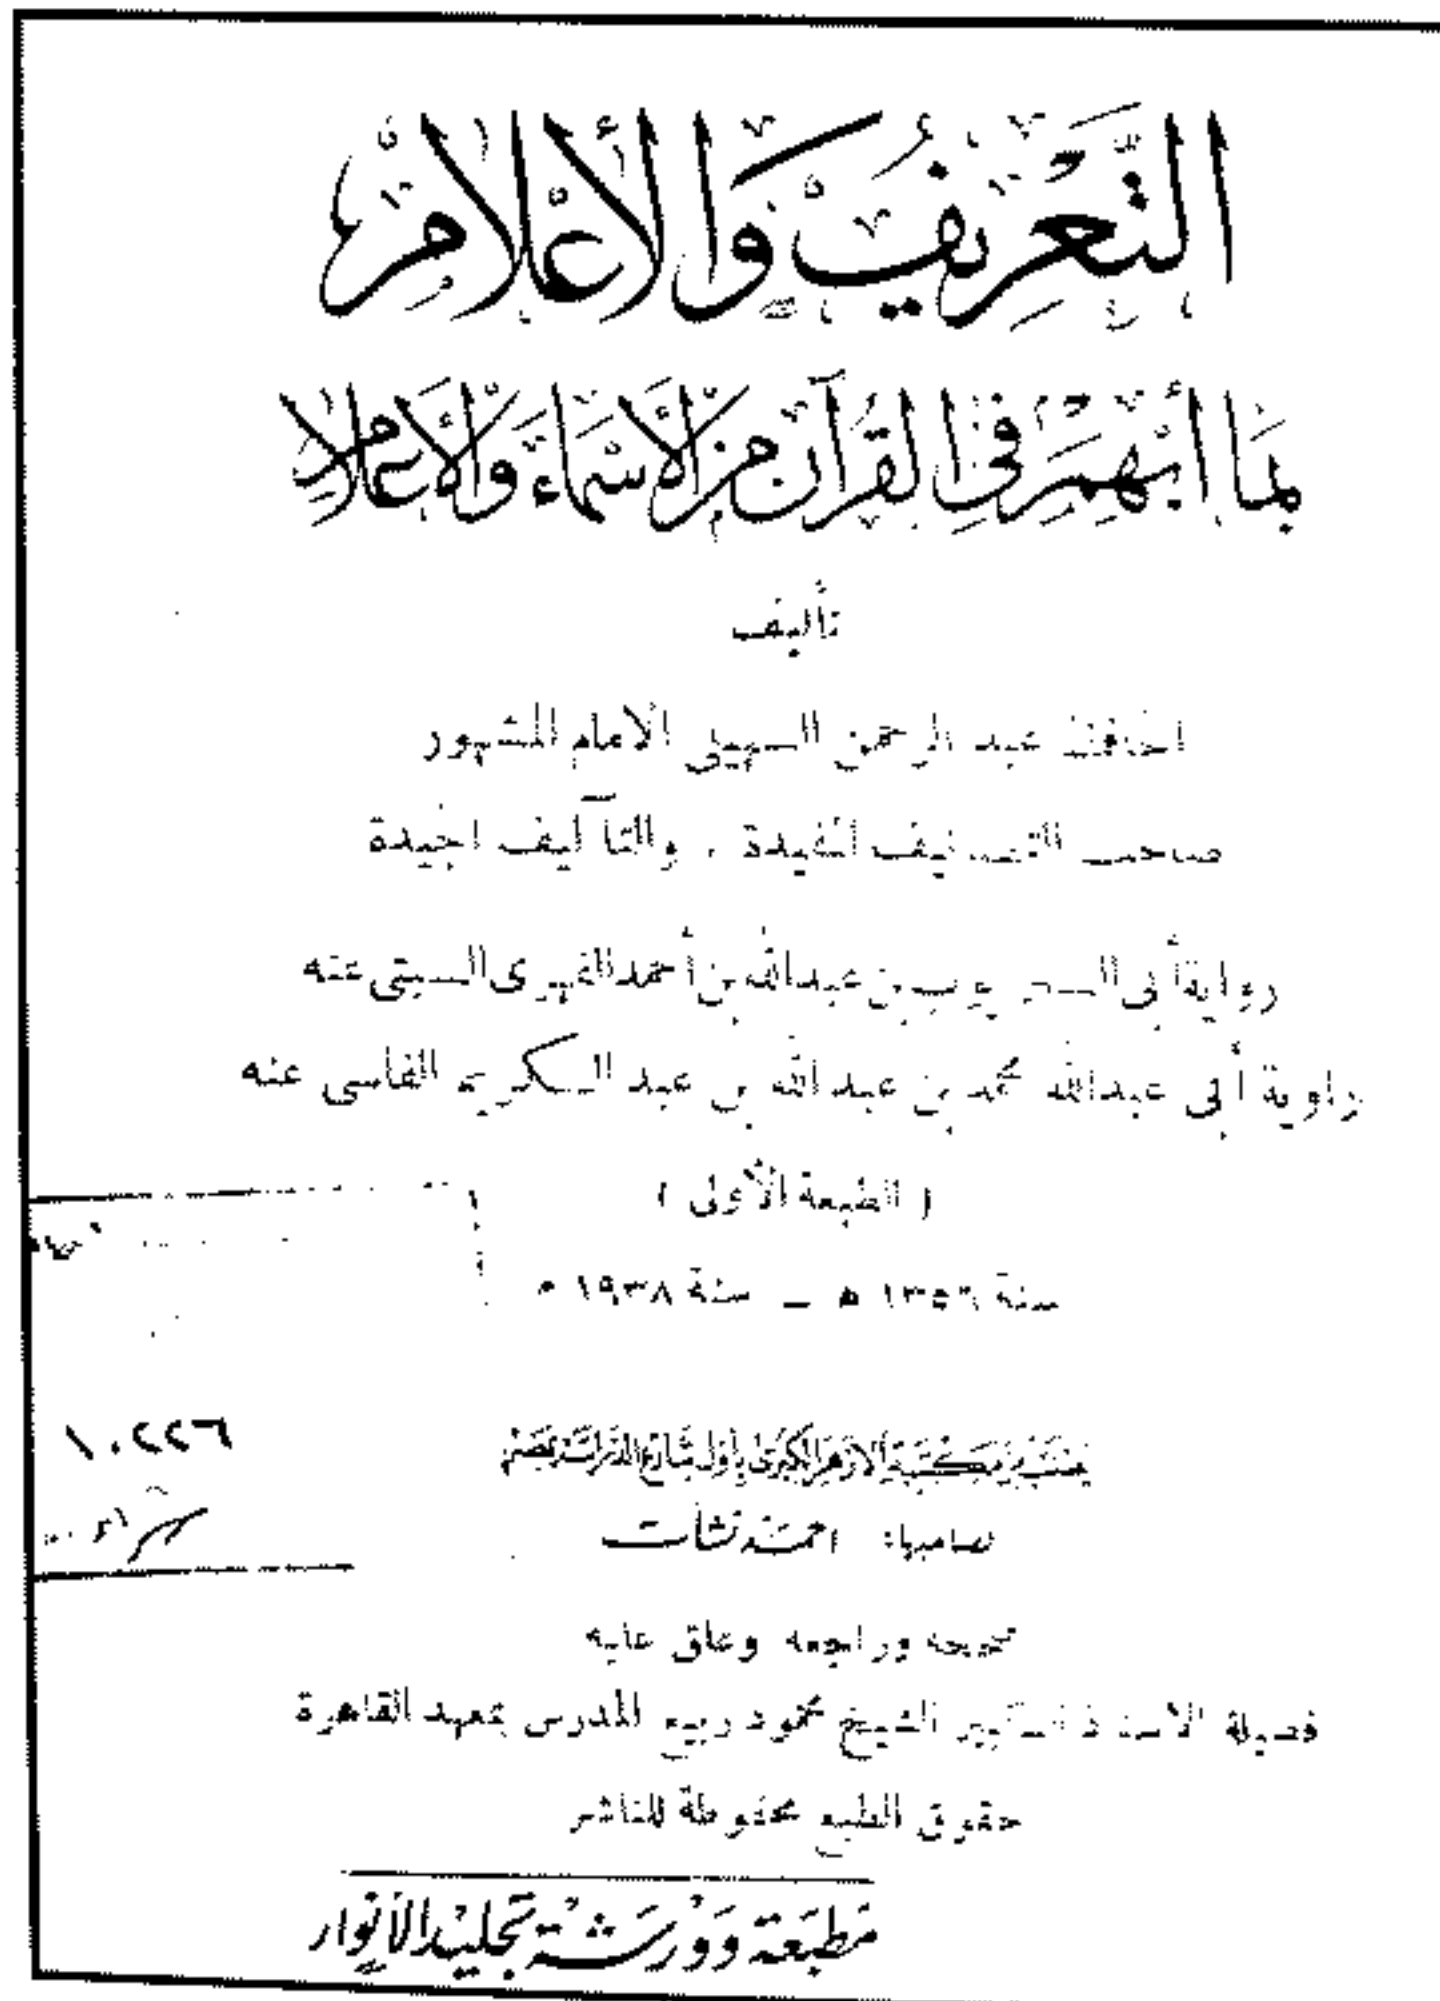 التَّعْرِيفُ وَالْأَعْلَامُ
بِمَا أُبْهِمَ فِي الْقُرْآنِ مِنَ الْأَسْمَاءِ وَالْأَعْلَامِ
تأليف
الحافظ عبد الرحمن السهيلى الامام المشهور
صاحب التصانيف المفيدة ، والتآليف الجيدة
رواية أبى بن عبدالله بن أحمد الفهرى السبتى عنه
راوية أبى عبدالله محمد بن عبد الله بن عبد الكريم الفاسى عنه
( الطبعة الأولى )
سنة ١٣٥٦ ه – سنة ١٩٣٨ م
١٠٢٢٦
مكتبة الازهر الكبرى بأول شارع بمصر
لصاحبها: احمد نشأت
صححه وراجعه وعلق عليه
فضيلة الاستاذ الكبير الشيخ محمود ربيع المدرس بمعهد القاهرة
حقوق الطبع محفوظة للناشر
مَطبَعَة وَوَرشَة تجليد الأنوار